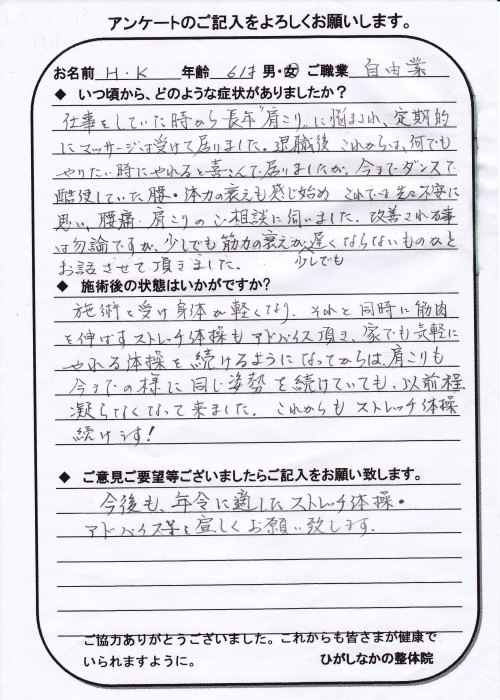 アンケートのご記入をよろしくお願いします。
お名前 H.K 年齢 61才 男・女 ご職業 自由業
◆ いつ頃から、どのような症状がありましたか？
仕事をしていた時から長年"肩こり"に悩まされ、定期的
にマッサージは受けて居りました。退職後これからは、何でも
やりたい時にやれると喜こんで居りましたが、今までダンスで
酷使していた腰・体力の衰えも感じ始め これでは先に不安に
思い、腰痛・肩こりのご相談に伺いました。改善される事
は勿論ですが、少しでも筋力の衰えが遅くならないものかと
少しでも
お話させて頂きました。
◆ 施術後の状態はいかがですか？
施術を受け身体が軽くなり、それと同時に筋肉
を伸ばすストレッチ体操もアドバイス頂き、家でも気軽に
やれる体操を続けるようになってからは、肩こりも
今までの様に同じ姿勢を続けていても、以前程
凝らなくなって来ました。これからもストレッチ体操
続けます！
◆ ご意見ご要望等ございましたらご記入をお願い致します。
今後も、年令に適したストレッチ体操・
アドバイス等を宜しくお願い致します。
ご協力ありがとうございました。これからも皆さまが健康で
いられますように。 ひがしなかの整体院